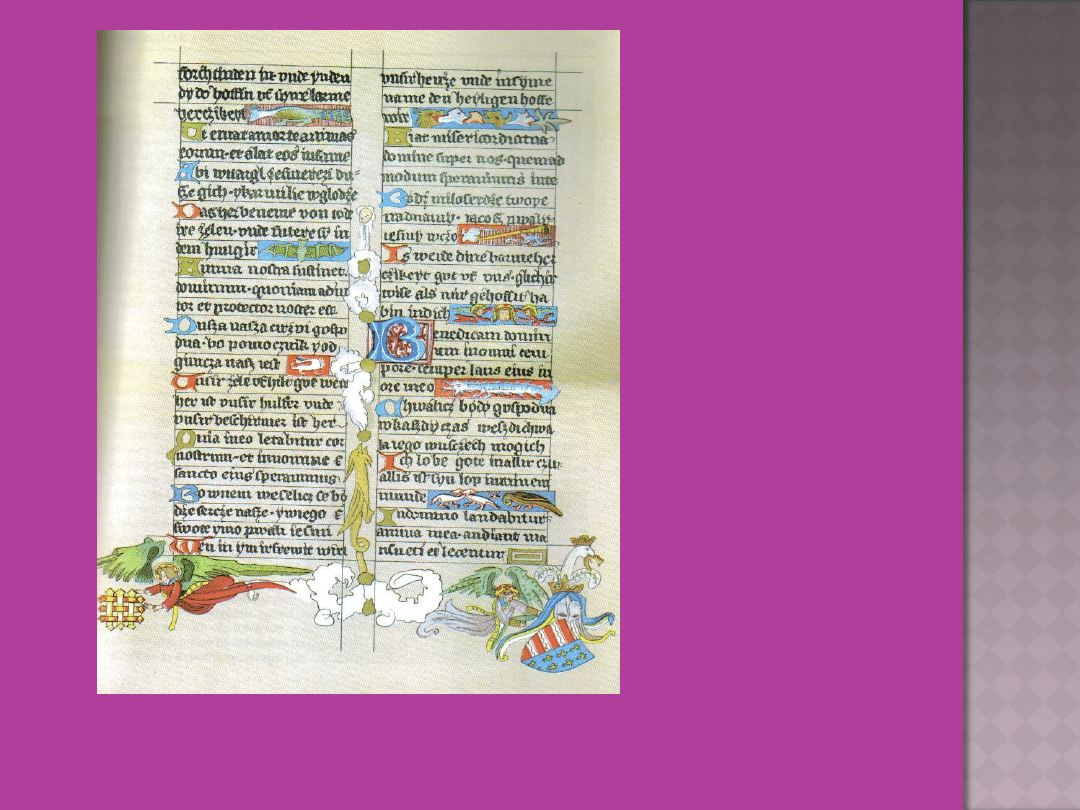 in vnde yn den
dy do hoffin vf syne barme
herczikeyt
Ut eruat a morte animas
eorum et alat eos in fame
Abi du
sze gich w glodze
Das her beneme von tode
ire zelen vnde futere sy in
dem hungir
Anima nostra sustinet
dominum quoniam adiu
tor et protector noster est
Dusza nasza cirzpi gospo
dna bo pomocznik y od
gimcza nasz iest
Unsir zele
her ist vnsir hulfer vnde
vnsir beschirmer ist her
Quia in eo letabitur cor
nostrum et in nomine
sancto eius sperauimus
Bo w nem weselicz se bo
dze sercze nasze y w iego
swote ymo pwali iesmi
Wen in ym irfrewit wirt
vnsir hercze vnde in syme
name den heyligen hoffe
wir
Fiat misericordia tua
domine super nos quemad
modum sperauimus in te
Bodz miloserdze twoye
nad nami iaco pwaly
iesmy w czo
Is werde dine barmeher
czikeyt got vf vns glicher
wise als wir gehoffit ha
bin in dich
Benedicam domin
um in omni tem
pore semper laus eius in
ore meo
Chwalicz bodo gospodna
w kaszdy czas weszdi chwa
la iego w usczech mogich
Ich lobe gote in allir cziit
allis ist syn lop in minem
munde
In domino laudabitur
anima mea audiant ma
nsueti et letentur